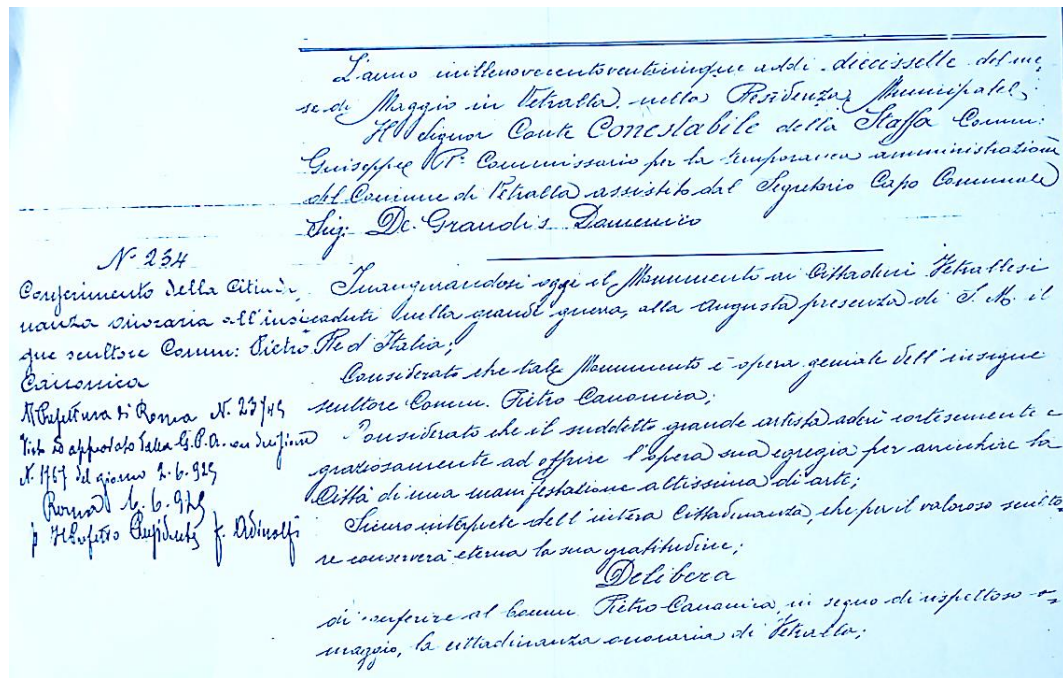 L'anno millenovecentoventicinque addì diecissette del me
se di Maggio in Vetralla, nella Residenza Municipale;
Il Signor Conte Conestabile della Staffa Comm:
Guiseppe R° Commissario per la temporanea amministrazione
del Comune di Vetralla assistito dal Segretario Capo Comunale
Sig: De Grandis Domenico
N° 234
Conferimento della Cittadi-
nanza onoraria all'insi-
gne scultore Comm: Pietro
Canonica
R Prefettura di Roma N. 23749
Visto ed approvato dalla G.P.A. con decisione
N. 1767 del giorno 2.6.925
Roma 6.6.925
p Il Prefetto Presidente f. Adinolfi
Inaugurandosi oggi il Monumento ai Cittadini Vetrallesi
caduti nella grande guerra, alla augusta presenza di S. M. il
Re d'Italia;
Considerato che tale Monumento è opera geniale dell'insigne
scultore Comm. Pietro Canonica;
Considerato che il suddetto grande artista aderì cortesemente e
graziosamente ad offrire l'opera sua egregia per arricchire la
Città di una manifestazione altissima di arte;
Sicuro interprete dell'intera Cittadinanza, che per il valoroso sculto-
re conserverà eterna la sua gratitudine;
Delibera
di conferire al Comm. Pietro Canonica, in segno di rispettoso o-
maggio, la cittadinanza onoraria di Vetralla;